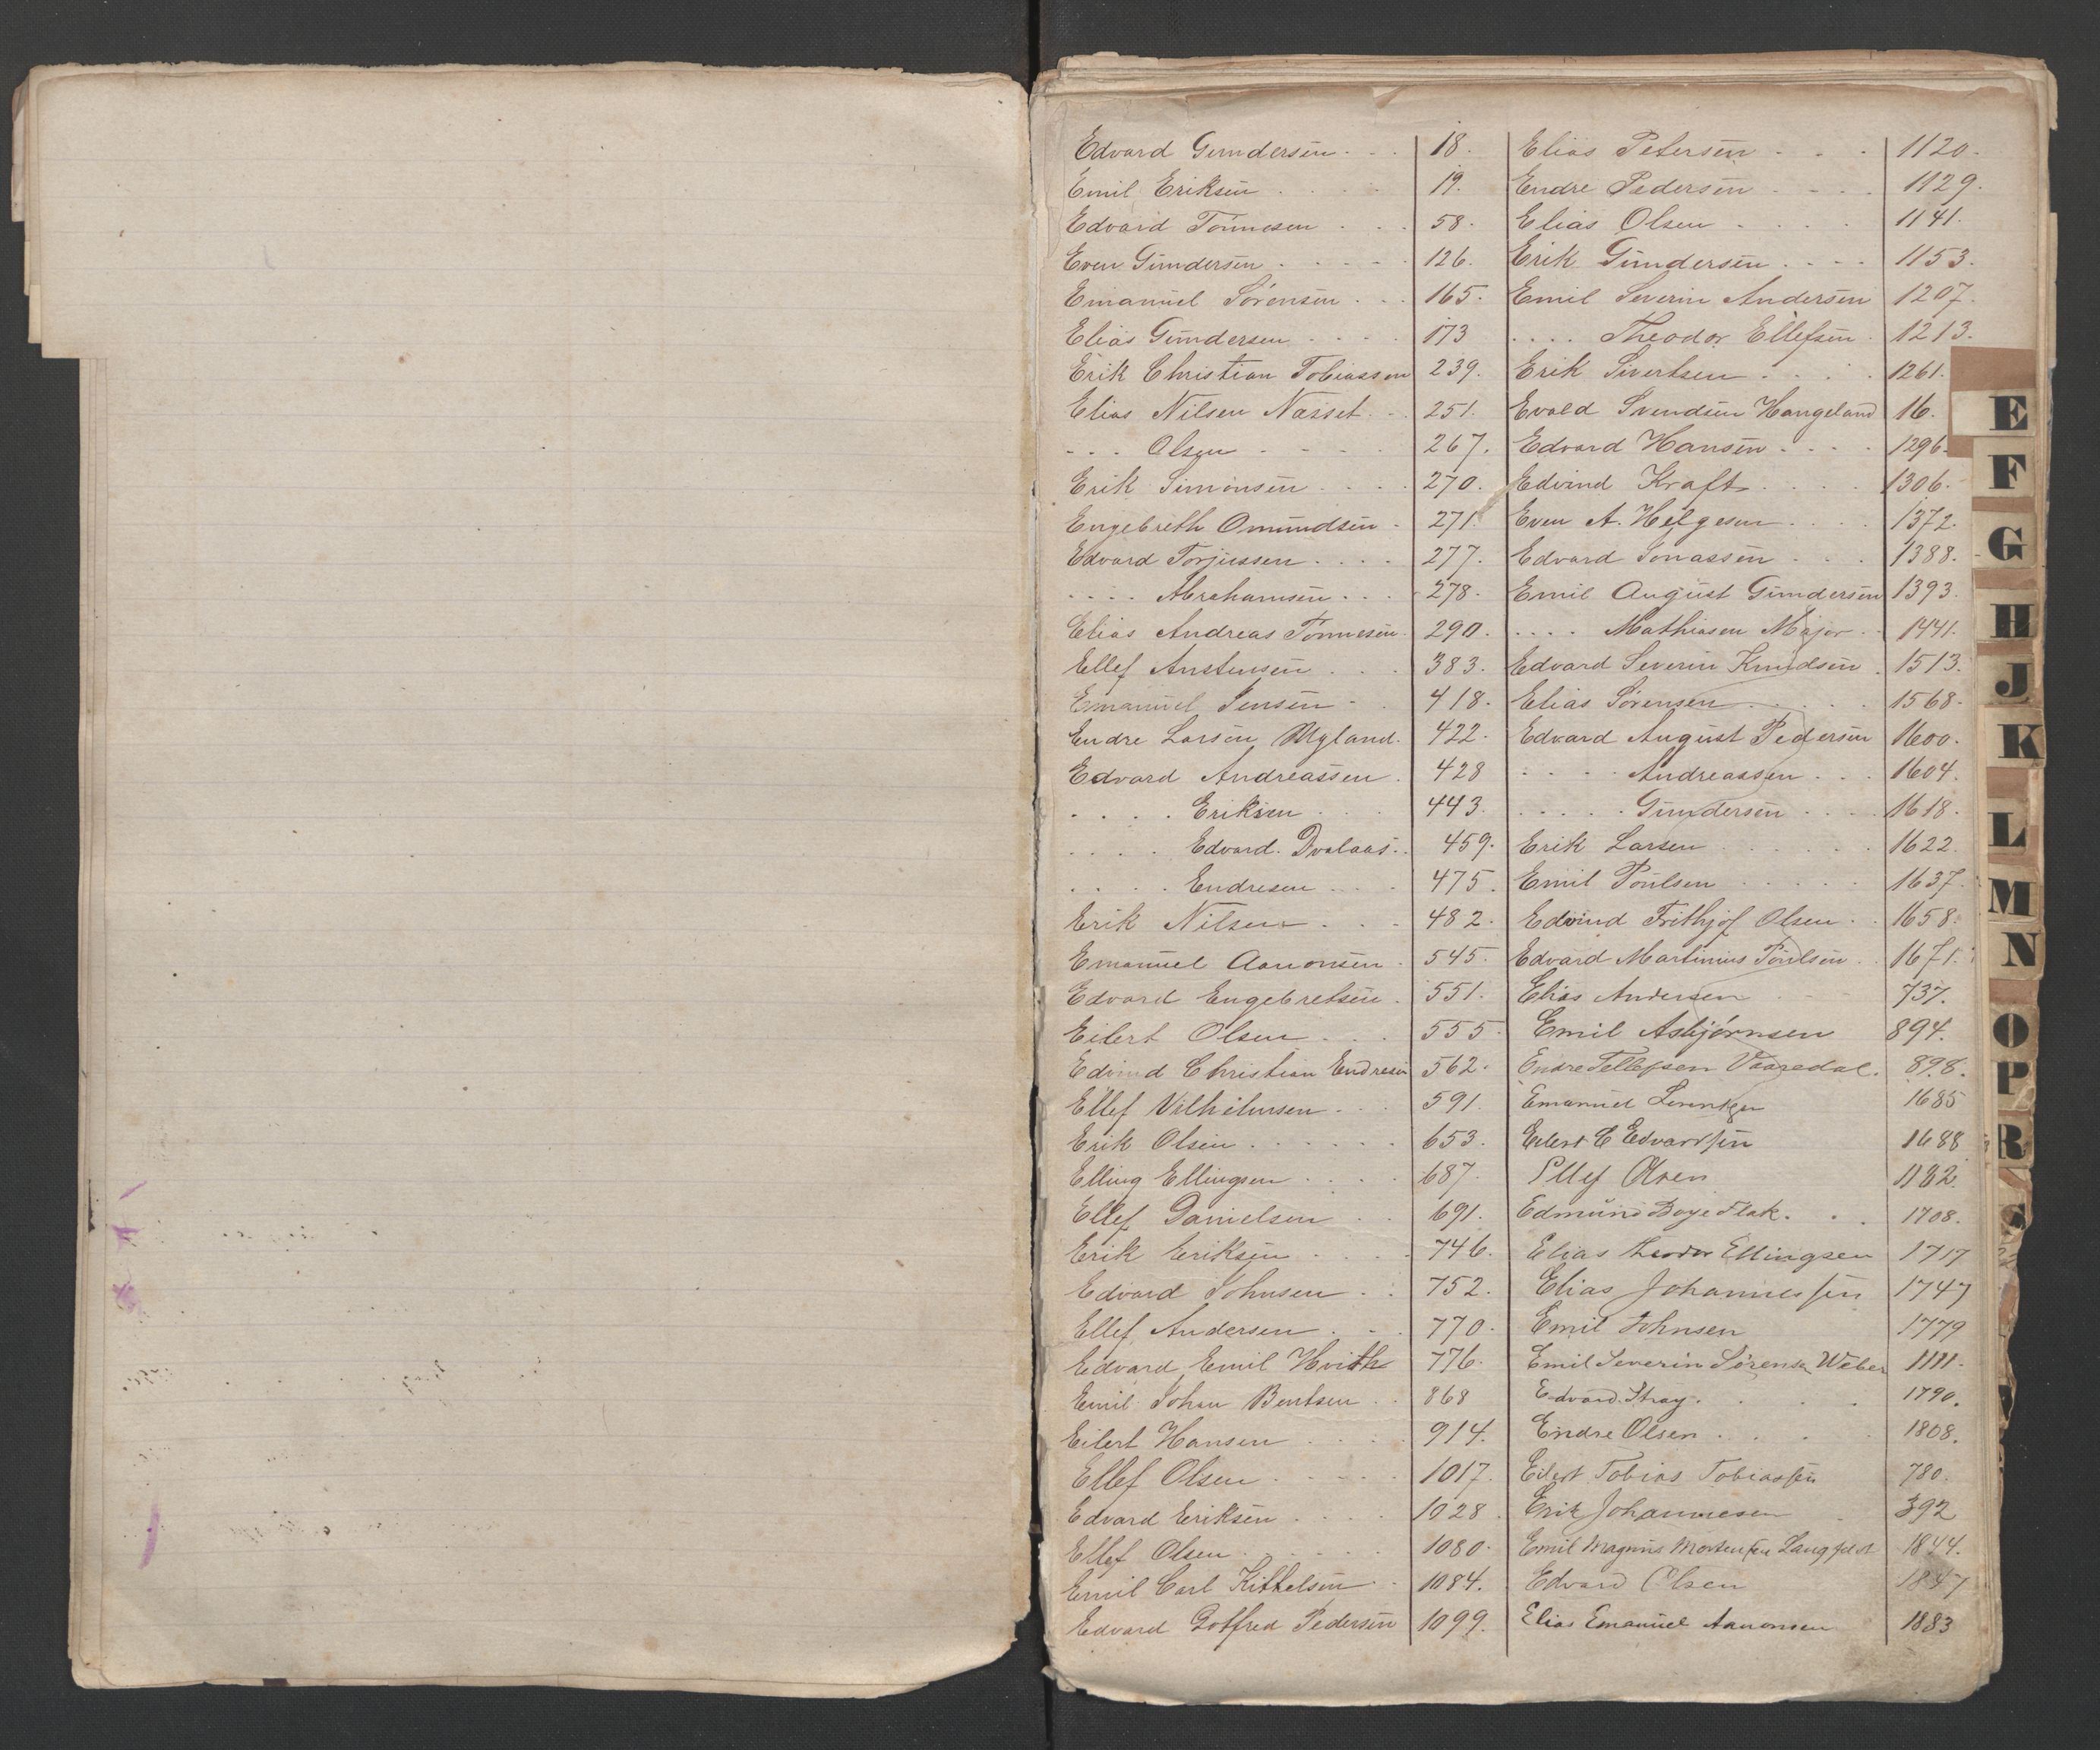 Edvard Gundersen . . . 18.
Emil Eriksen . . . . 19.
Edvard Tönnesen . . . 58.
Even Gundersen . . . . . 126.
Emanuel Sörensen . . . 165.
Elias Gundersen . . . . 173
Erik Christian Tobiassen 239.
Elias Nilsen Næsset . . 251.
- . . Olsen . . . . 267.
Erik Simonsen . . . . 270.
Engebreth Omundsen . 271.
Edvard Torjussen . . . . 277.
. . . . Abrahamsen . . . 278.
Elias Andreas Tönnesen . 290.
Ellef Anstensen . . . 383.
Emanuel Jensen . . 418.
Endre Larsen Myland . 422.
Edvard Andreassen . 428
. . . . Eriksen . . . 443.
. . . . Edvard. Dvalaas . . 459.
. . . . Endresen . . . 475.
Erik Nilsen . . . 482.
Emanuel Aanonsen . 545.
Edvard Engebretsen . 551.
Eilert Olsen . . . 555
Edvind Christian Endresen 562.
Ellef Vilhelmsen . . . 591.
Erik Olsen . . . . . . 653.
Elling Ellingsen . . . . 687.
Ellef Danielsen . . 691.
Erik Eriksen . . . . 746.
Edvard Johnsen . . 752.
Ellef Andersen . . . 770.
Edvard Emil Hvith 776.
Emil Johan Bentsen . . 868
Eilert Hansen . . . . 914.
Ellef Olsen . . . . . 1017.
Edvard Eriksen . . . . 1028
Ellef Olsen . . . . . 1080.
Emil Carl Kittelsen . . 1084.
Edvard Gotfred Pedersen 1099.
Elias Petersen . . . 1120.
Endre Pedersen . . . . 1129.
Elias Olsen . . . . 1141.
Erik Gundersen . . . . 1153.
Emil Severin Andersen 1207.
. . . . Theodor Ellefsen . 1213.
Erik Sivertsen . . . . 1261.
Evald Svendsen Haugeland 16.
Edvard Hansen . . . . 1296.
Edvind Kraft . . . . 1306.
Even A. Helgesen . . . . 1372.
Edvard Jonassen . . . 1388.
Emil August Gundersen 1393.
. . . . Mathiasen Major . . 1441.
Edvard Severin Knudsen . 1513.
Elias Sörensen . . . . . 1568.
Edvard August Pedersen 1600.
. . . . Andreassen . . . 1604.
. . . . . Gundersen . . . . 1618.
Erik Larsen . . . . . . 1622.
Emil Poulsen . . . . . 1637.
Edvind Frithjof Olsen . . 1658.
Edvard Martinius Poulsen . . 1671.
Elias Andersen . . . 737.
Emil Asbjörnsen 894.
Endre Tellefsen Vaaredal . 898.
Emanuel Lorentzen 1685
Eilert E Edvardsen 1688
Ellef Olsen 1182.
Edmund Boye Flak . . . 1708.
Elias Theodor Ellingsen 1717
Elias Johannessen 1747
Emil Johnsen 1779
Emil Severin Sörensen Weber 1111.
Edvard Stray . . . . 1790.
Endre Olsen . . . . . 1808.
Eilert Tobias Tobiassen 780.
Erik Johannesen . 392
Emil Magnus Mortensen Langfeldt 1844.
Edvard Olsen 1847
Elias Emanuel Aanonsen 1883
E
F
G
H
J
K
L
M
N
O
P
R